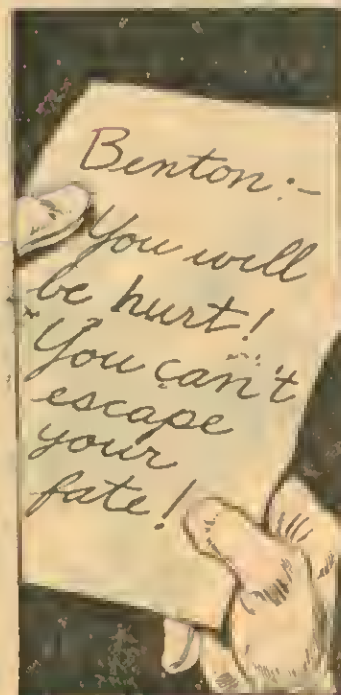 Benton:-
You will
be hurt!
You can't
escape
your
fate!